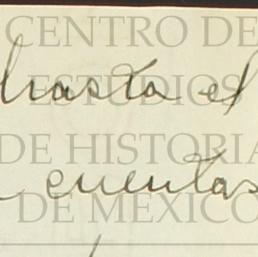 CENTRO DE
hasta el
ESTUDIOS
DE HISTORIA
cuentas
DE MEXICO